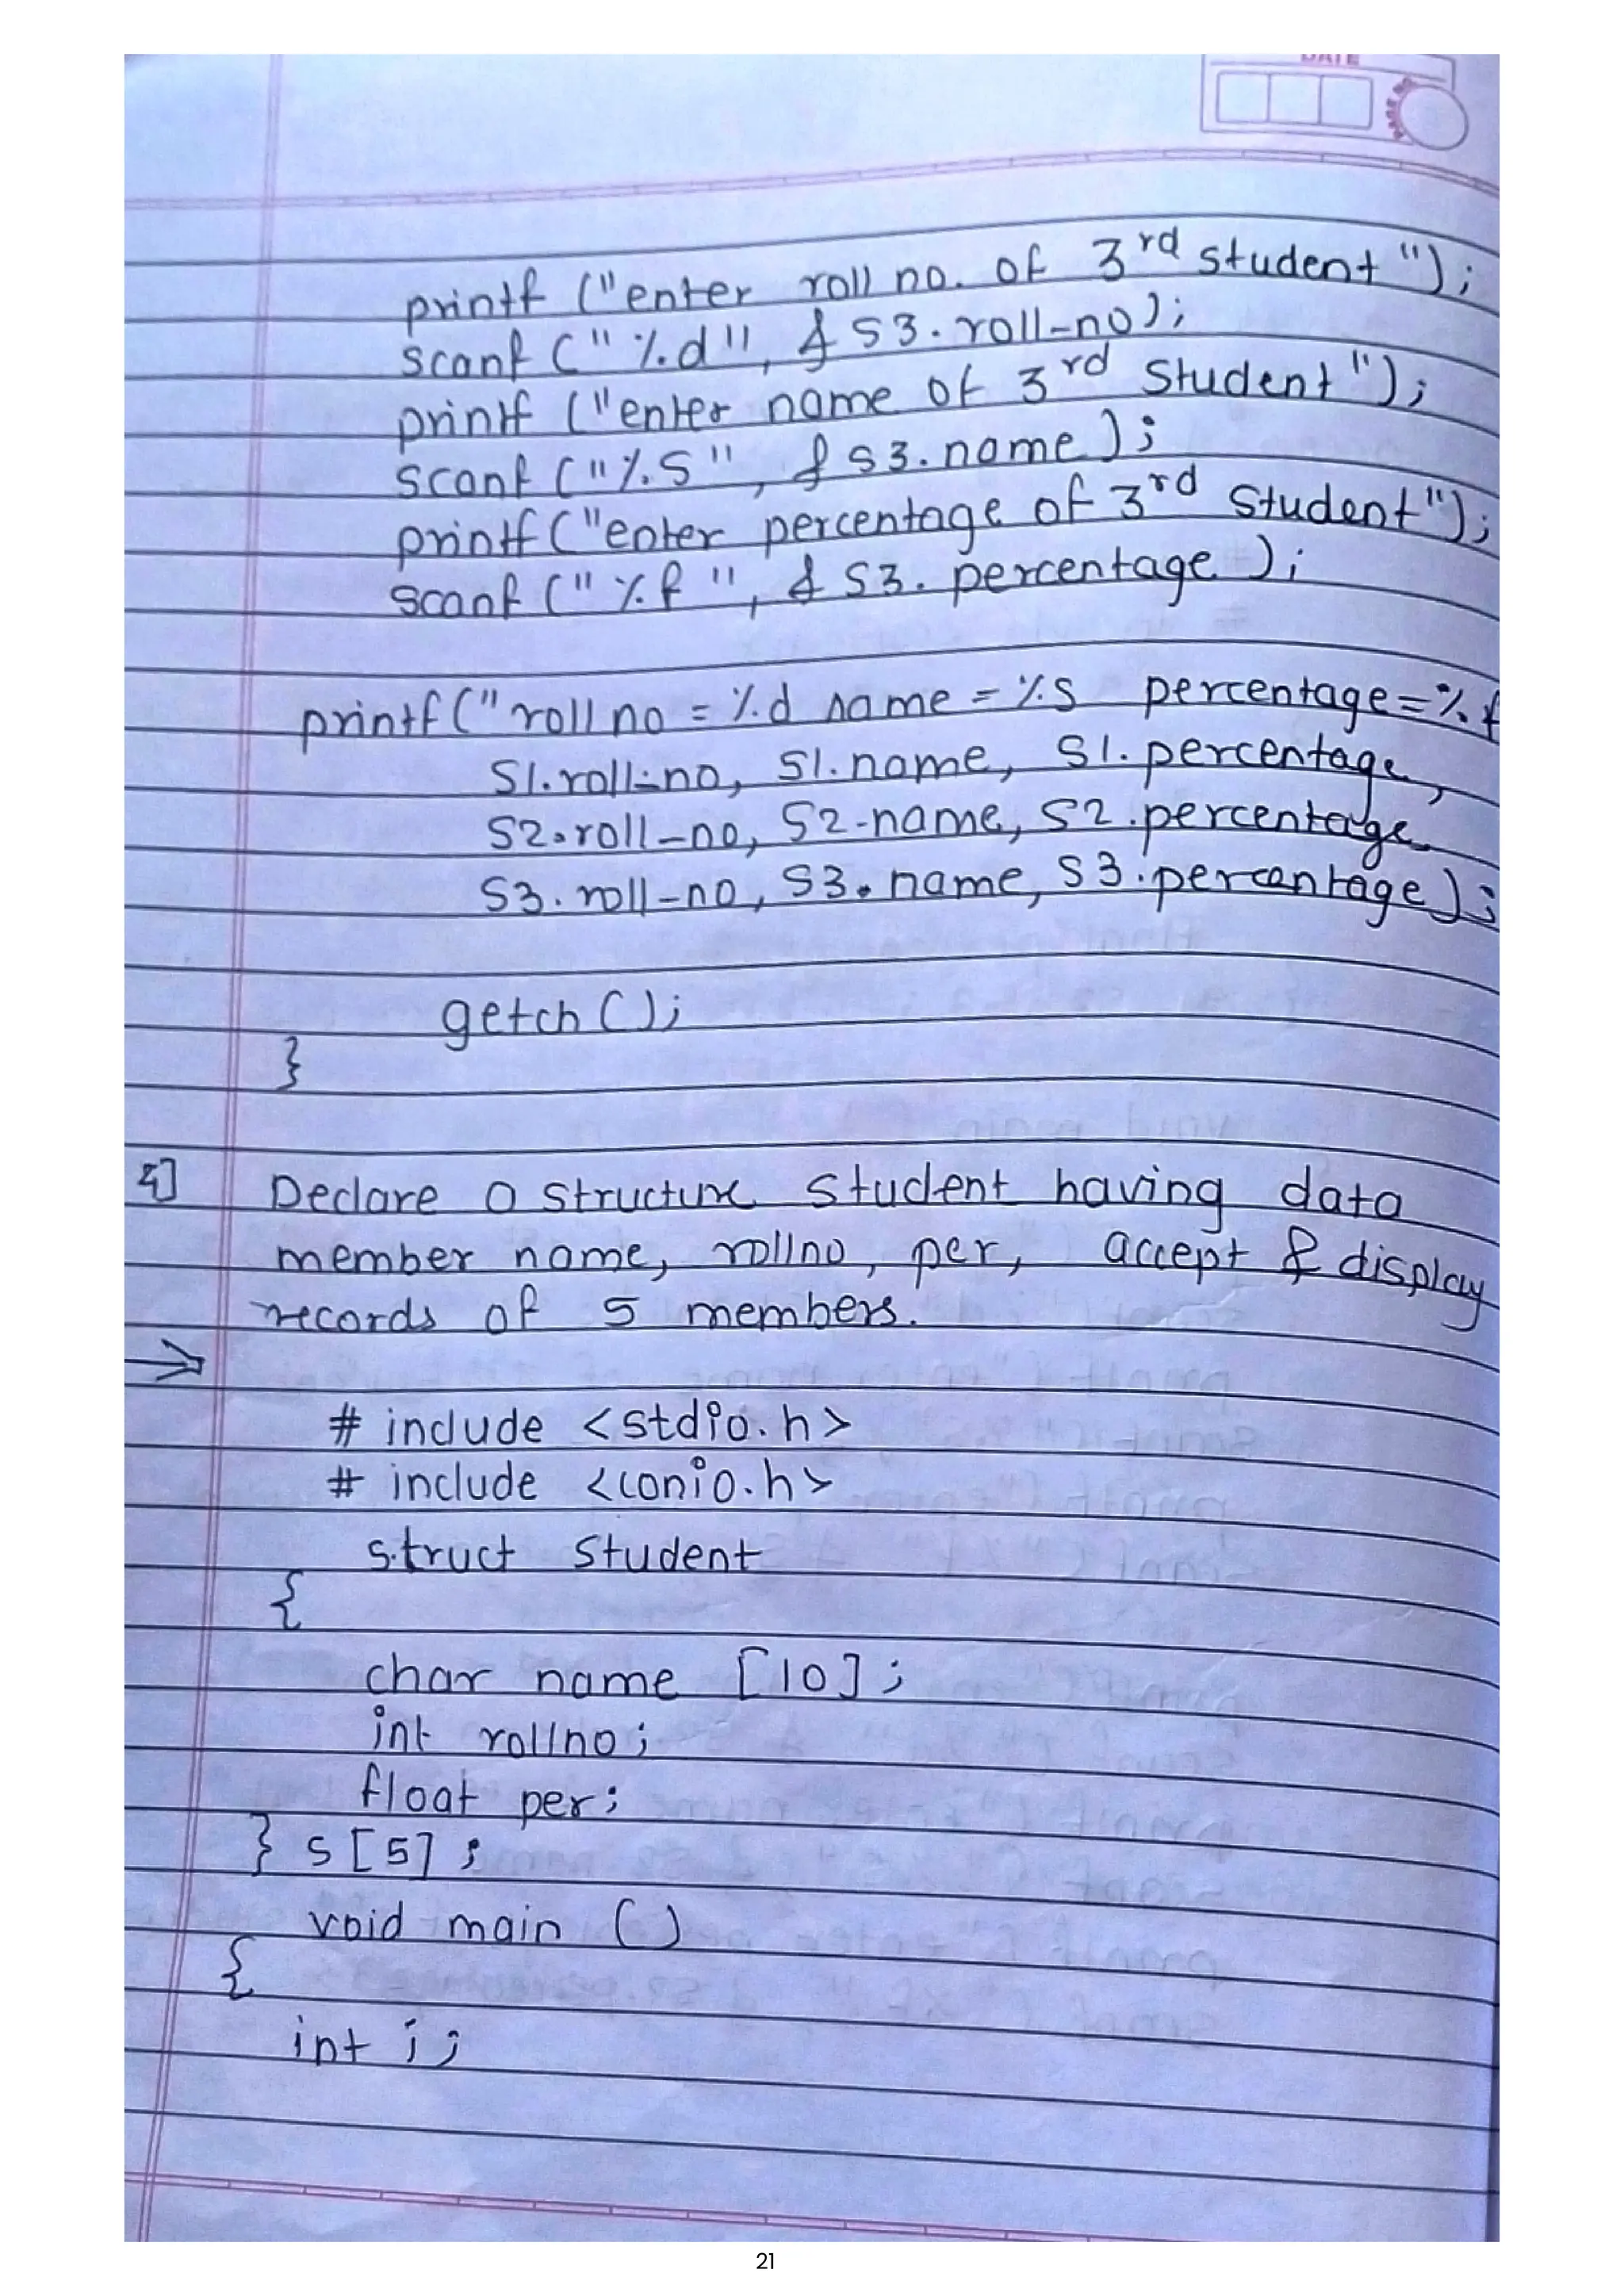 DATE
printf ("enter roll no. of 3rd student");
scanf ("%d", & S3.roll-no);
printf ("enter name of 3rd Student");
scanf ("%s", & s3.name);
printf ("enter percentage of 3rd Student");
scanf ("%f", & S3.percentage);
printf ("roll no = %d name = %s percentage=%f
S1.roll-no, S1.name, S1.percentage,
S2.roll-no, S2.name, S2.percentage,
S3.roll-no, S3.name, S3.percentage);
getch ();
}
Declare a structure student having data
member name, rollno, per, accept & display
records of 5 members.
⇒
# include <stdio.h>
# include <conio.h>
struct student
{
char name [10];
int rollno;
float per;
} s[5];
void main ()
{
int i;
21